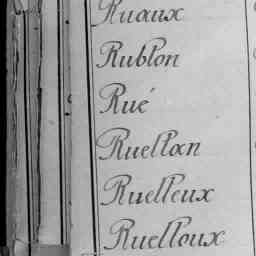 Ruaux
Rublon
Rué
Ruellan
Ruelleux
Ruelloux